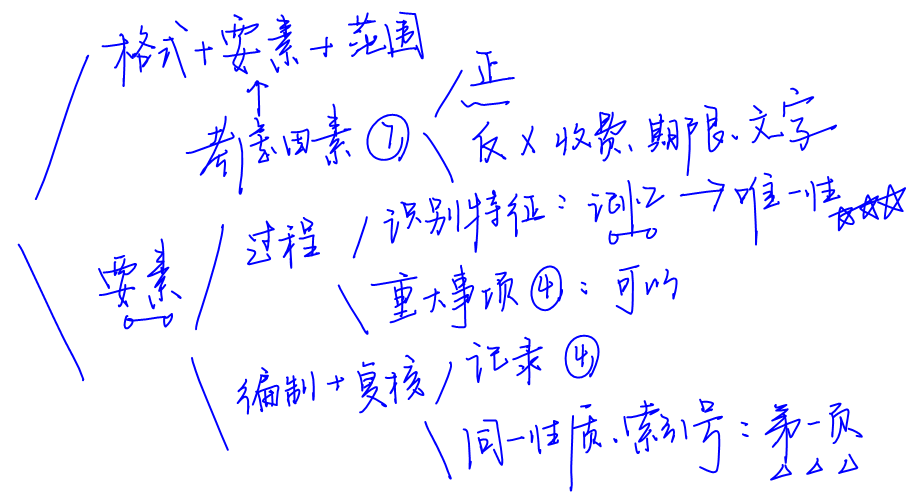 格式+要素+范围
考虑因素⑦ 正
反×收费、期限、文字
要素 过程 识别特征:测工→唯一性☆☆☆
重大事项④:可以
编制+复核 记录④
同一性质、索引号:第一页